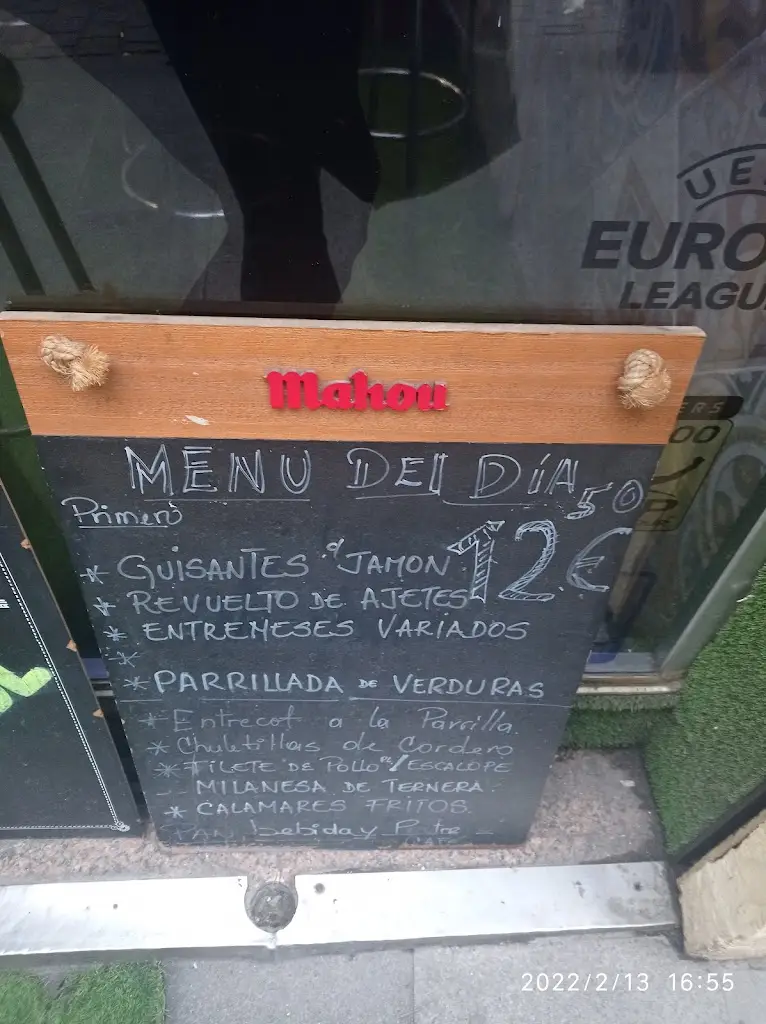 UE
EURO
LEAGU
ERS
00
Mahou
MENU DEL DÍA
50
Primero
12€
* GUISANTES c/ JAMON
* REVUELTO DE AJETES
* ENTREMESES VARIADOS
*
* PARRILLADA DE VERDURAS
* Entrecot a la Parrilla
* Chuletillas de Cordero
* FILETE DE POLLO / ESCALOPE
- MILANESA DE TERNERA
* CALAMARES FRITOS
PAN bebida y Postre
2022/2/13 16:55